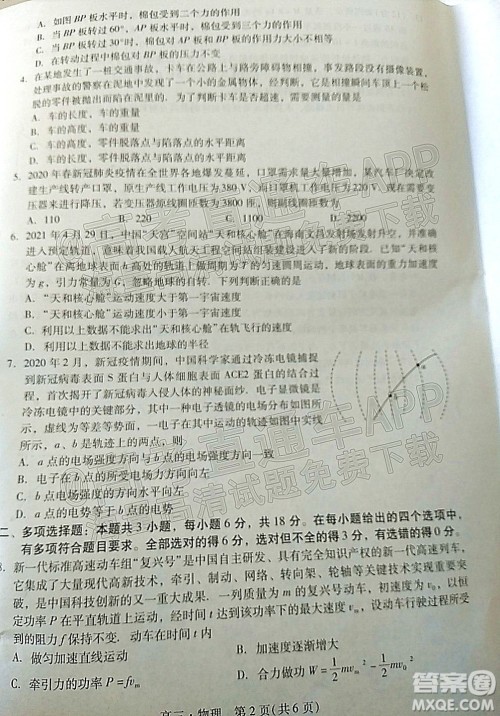 A. 如图BP板水平时，棉包受到三个力的作用
B. 当BP板转过60°，AP板水平时，棉包受到二个力的作用
C. 当BP板转过30°时，棉包对AP板和BP板的作用力大小不相等
D. 在转动过程中棉包对BP板的压力不变
4. 在某地发生了一桩交通事故，卡车在公路上与路旁障碍物相撞，事故路段没有摄像装置，
处理事故的警察在泥地中发现了一个小的金属物体，经判断，它是相撞瞬间车顶上一个松
脱的零件被抛出而陷在泥里的。为了判断卡车是否超速，需要测量的量是
A. 车的长度、车的重量
B. 车的高度、车的重量
C. 车的长度、零件脱落点与陷落点的水平距离
D. 车的高度、零件脱落点与陷落点的水平距离
5. 2020年春新冠肺炎疫情在全世界各地爆发蔓延，口罩需求量大量增大，某汽车厂决定改
建生产线转产口罩，原生产线工作电压为380V，而新生产线工作电压为220V，现在需要变
压器来进行降压，若变压器原线圈匝数为3800匝，则副线圈匝数为
A. 1100 B. 2200 C. 2900 D. 3100
6. 2021年4月29日，中国“天宫”空间站“天和核心舱”在海南文昌发射场发射升空，并准确
进入预定轨道，意味着我国载人航天工程空间站组装建设进入了新的阶段。已知“天和核
心舱”在离地球表面h高处的轨道上做周期为T的匀速圆周运动，地球表面重力加速度
为g，引力常量为G，忽略地球的自转。下列说法正确的是
A. “天和核心舱”运动速度大于第一宇宙速度
B. “天和核心舱”运动速度小于第一宇宙速度
C. 利用以上数据不能求出“天和核心舱”在轨飞行的速度
D. 利用以上数据不能求出地球的半径
7. 2020年2月，新冠疫情期间，中国科学家通过冷冻电镜捕捉
到新冠病毒表面S蛋白与人体细胞表面ACE2蛋白的结合过
程，首次揭开了新冠病毒入侵人体的神秘面纱。电子显微镜是
冷冻电镜中的关键部分，一种电子透镜的电场分布如图所
示，虚线为等差等势面，一电子在其中运动的轨迹如图中实线
所示，a、b是轨迹上的两点，则
A. a点的电场强度方向与b点的电场强度方向一致
B. a点的电场强度方向水平向左
C. b点的电场强度方向水平向右
D. a点的电势等于b点的电势
二、多项选择题：本题共3小题，每小题6分，共18分。在每小题给出的四个选项中，
有多项符合题目要求。全部选对的得6分，选对但不全的得3分，有选错的得0分
8. 新一代标准高速动车组“复兴号”是中国自主研发、具有完全知识产权的新一代高速列车，
它集成了大量现代高新技术，牵引、制动、网络、转向架、轮轴等关键技术实现重要突
破，是中国科技创新的又一重大成果。一列质量为m的动车，初速度为v₀，以恒
定功率P在平直轨道上运动，经时间t达到该功率下的最大速度vₘ，设动车行驶过程所受
到的阻力f保持不变. 动车在时间t内
A. 做匀加速直线运动 B. 加速度逐渐增大
C. 牵引力的功率P=fvₘ D. 合力做功W=½mvₘ²−½mv₀²
高三·物理 第2页(共6页)
直通车APP
高清试题免费下载
答案圈
MXQE.COM